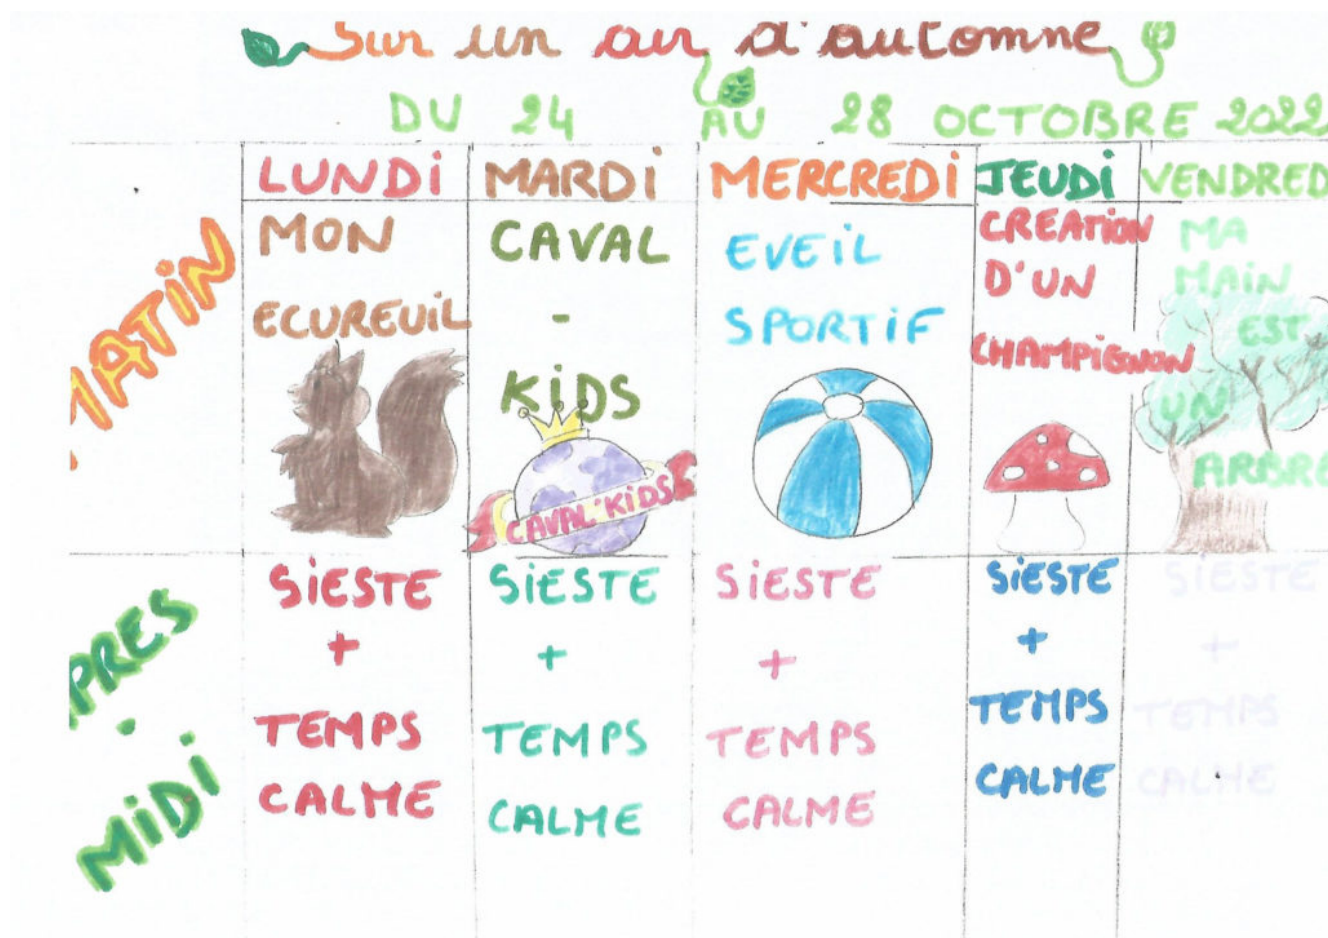 Sur un air d'automne
DU 24 AU 28 OCTOBRE 2022
LUNDi MARDi MERCREDi JEUDi VENDRED
MATiN
MON
ECUREUiL
CAVAL
-
KiDS
CAVAL'KiDS
EVEiL
SPORTiF
CREATiON
D'UN
CHAMPiGNON
MA
MAiN
EST
UN
ARBRE
APRES
-
MiDi
SiESTE
+
TEMPS
CALME
SiESTE
+
TEMPS
CALME
SiESTE
+
TEMPS
CALME
SiESTE
+
TEMPS
CALME
SiESTE
+
TEMPS
CALME